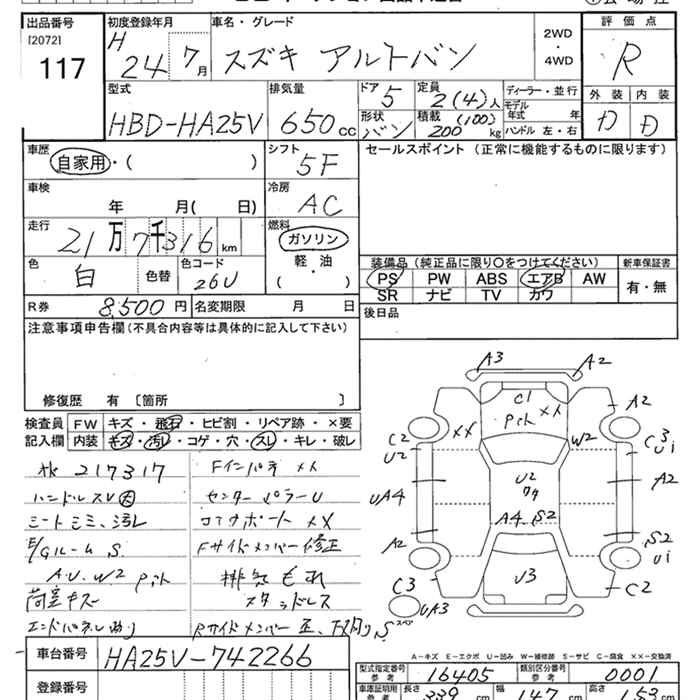 出品番号 初度登録年月 車名・グレード 2WD ・ 4WD 評価点
[2072] H 24 7月 スズキ アルトバン R
117
型式 排気量 ドア 5 定員 2(4)人 ディーラー・並行 外装 内装
HBD-HA25V 650cc 形状 バン 積載 (100) 200kg モデル年式 年 ハンドル 左・右 D D
車歴 シフト セールスポイント (正常に機能するものに限ります)
自家用・( ) 5F
車検 冷房
年 月( 日) AC
走行 燃料
21万7千316km ガソリン
色 色替 色コード 軽・油
白 26U ( )
装備品(純正品に限り○をつけてください) 新車保証書
PS PW ABS エアB AW 有・無
SR ナビ TV カワ
R券 8,500円 名変期限 月 日 後日品
注意事項申告欄(不具合内容等は具体的に記入して下さい)
修復歴 有 〔箇所 〕
検査員 FW キズ・飛石・ヒビ割・リペア跡・×要
記入欄 内装 キズ・汚レ・コゲ・穴・スレ・キレ・破レ
217317 Fインパネ XX
ハンドルスレ センターピラーU
シートシミ、汚レ コアサポートXX
E/Gルーム S Fサイドメンバー修正
A.U.W2 Pck 排気もれ
荷室キズ スタッドレス
エンドパネル Rサイドメンバー S
A3 A2
C1 A2
Pck XX
C2 XX W2 C3
U2 U1
UA4 U2 A2
A4 S2
A2 S2
U1
C3 U3 C2
UA3
A-キズ E-エクボ U-凹み W-補修跡 S-サビ C-腐食 XX-交換済
車台番号 HA25V-742266
型式指定番号 16405 類別区分番号 0001
登録番号 車庫証明用 長さ 339cm 幅 147cm 高さ 153cm